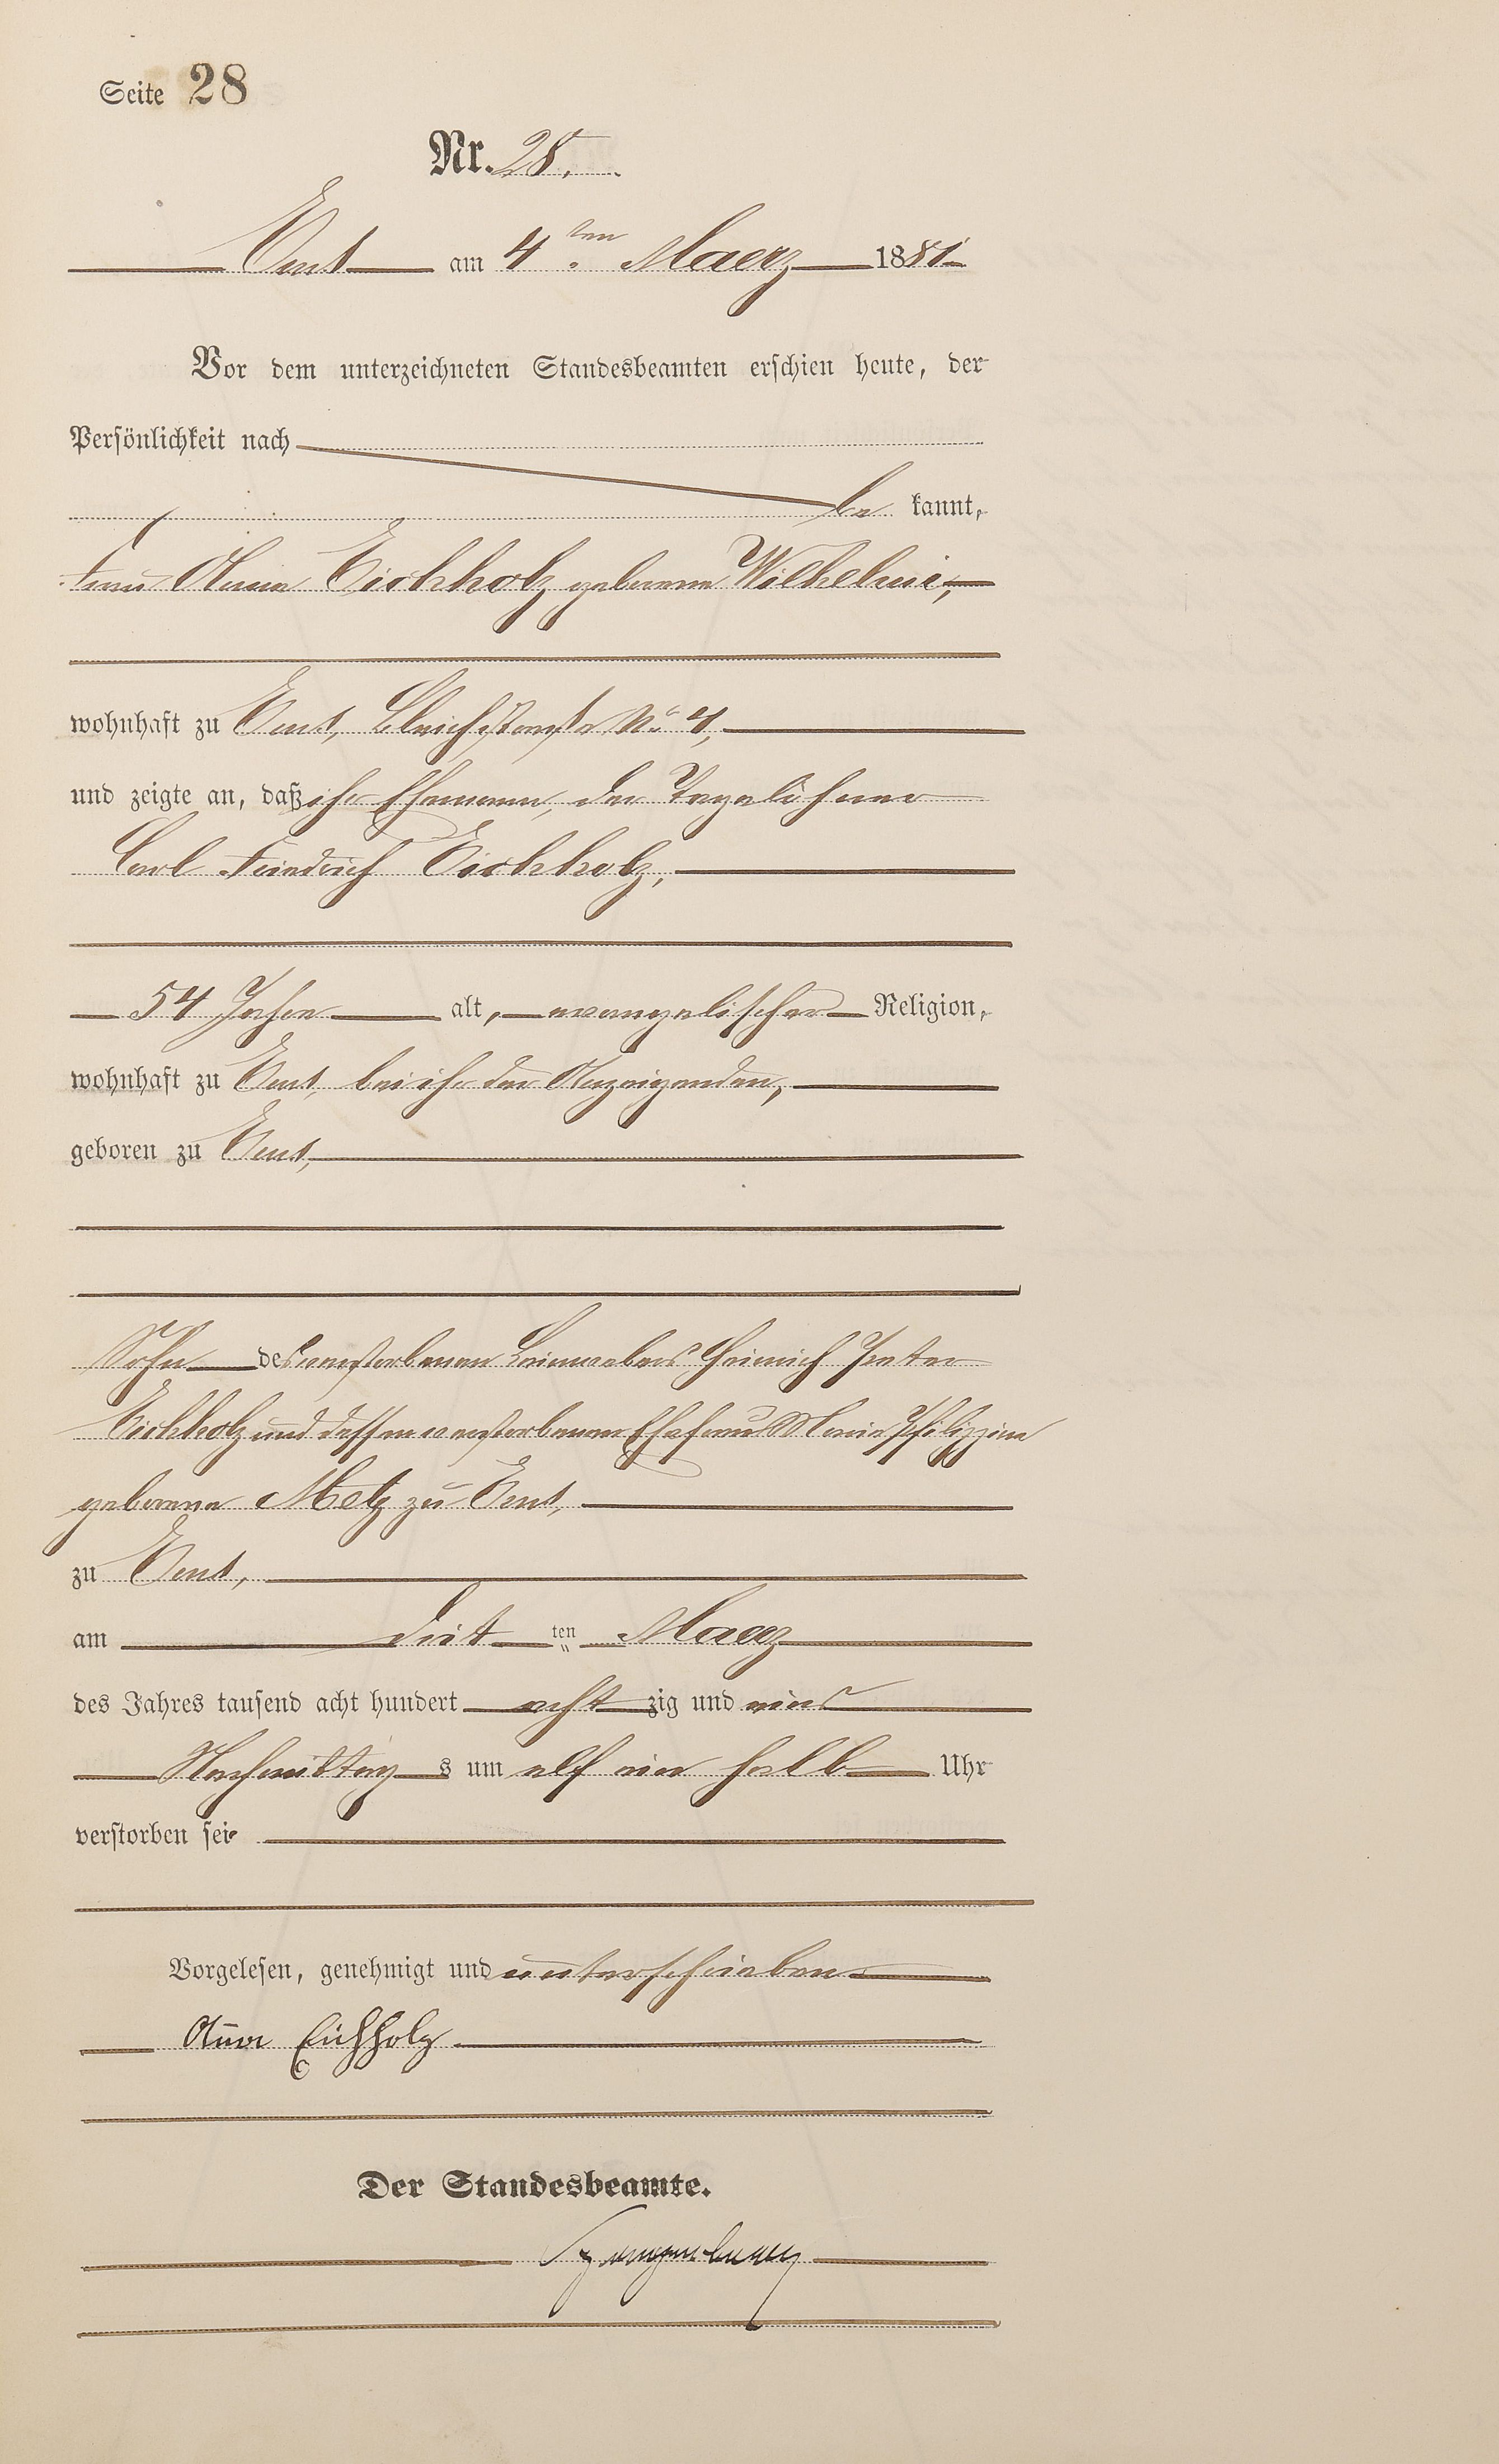 Seite 28
Nr. 28.
Ems am 4ten Maerz 1881
Vor dem unterzeichneten Standesbeamten erschien heute, der
Persönlichkeit nach
be kannt,
Frau Anna Eichholz geborene Wilhelmi,
wohnhaft zu Ems, Bleichstraße No 4,
und zeigte an, daß ihr Ehemann, der Tagelöhner
Carl Friedrich Eichholz,
54 Jahre alt, evangelischer Religion,
wohnhaft zu Ems, bei ihr der Anzeigenden,
geboren zu Ems,
Sohn des verstorbenen Leinwebers Heinrich Peter
Eichholz und dessen verstorbenen Ehefrau Maria Philippine
geborene Metz zu Ems,
zu Ems,
am drit ten Maerz
des Jahres tausend acht hundert acht zig und eins
Nachmittag s um elf ein halb Uhr
verstorben sei
Vorgelesen, genehmigt und unterschrieben
Anna Eichholz
Der Standesbeamte.
Spangenberg